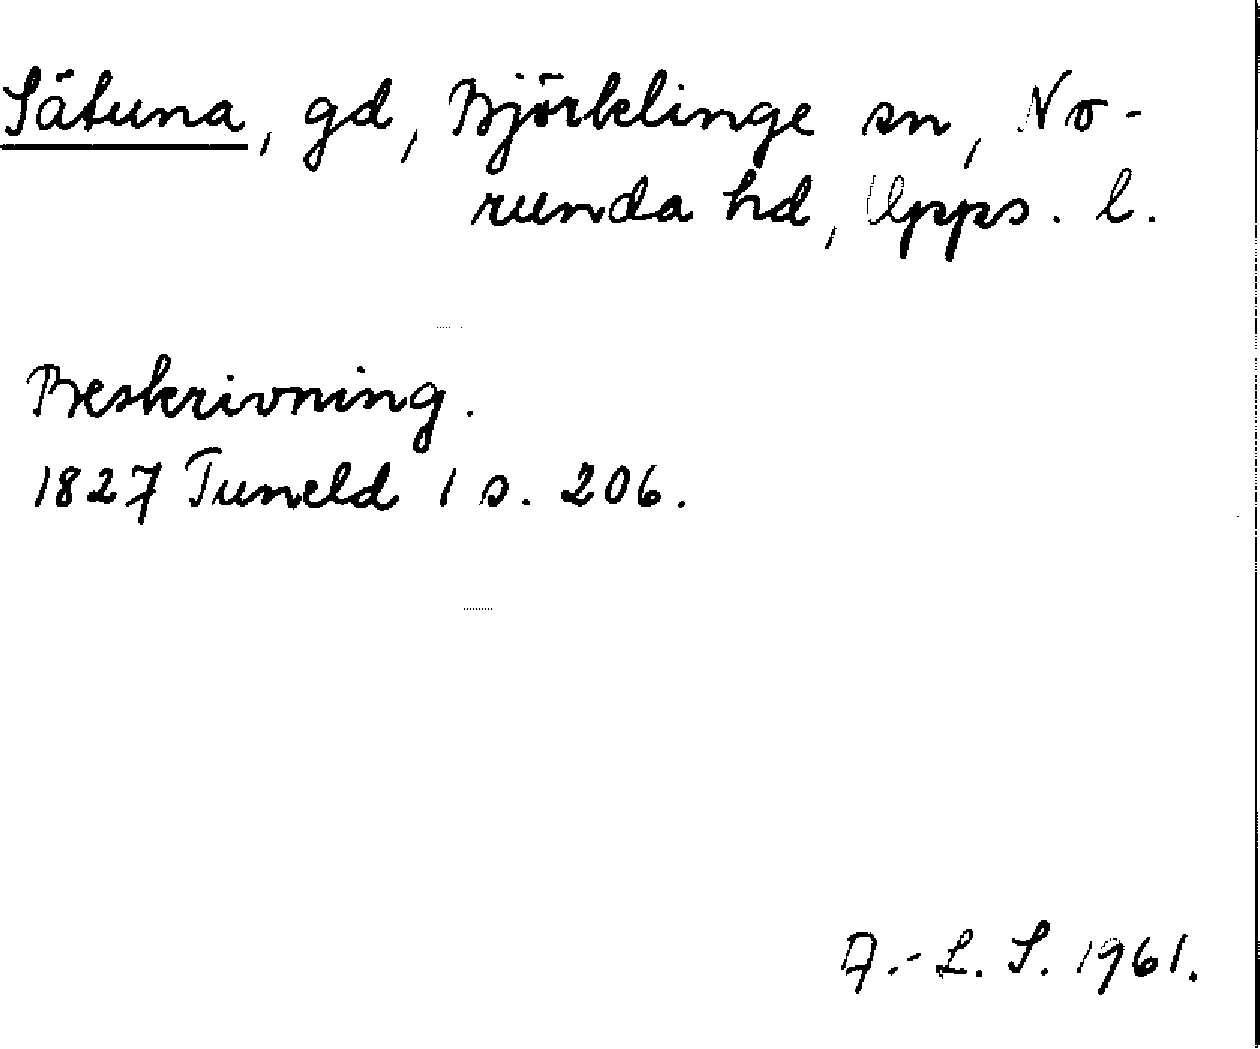 Sätuna, gd, Björklinge sn, No-
runda hd, Upps. l.
Beskrivning.
1827 Tuneld 1 s. 206.
A.-L. S. 1961.